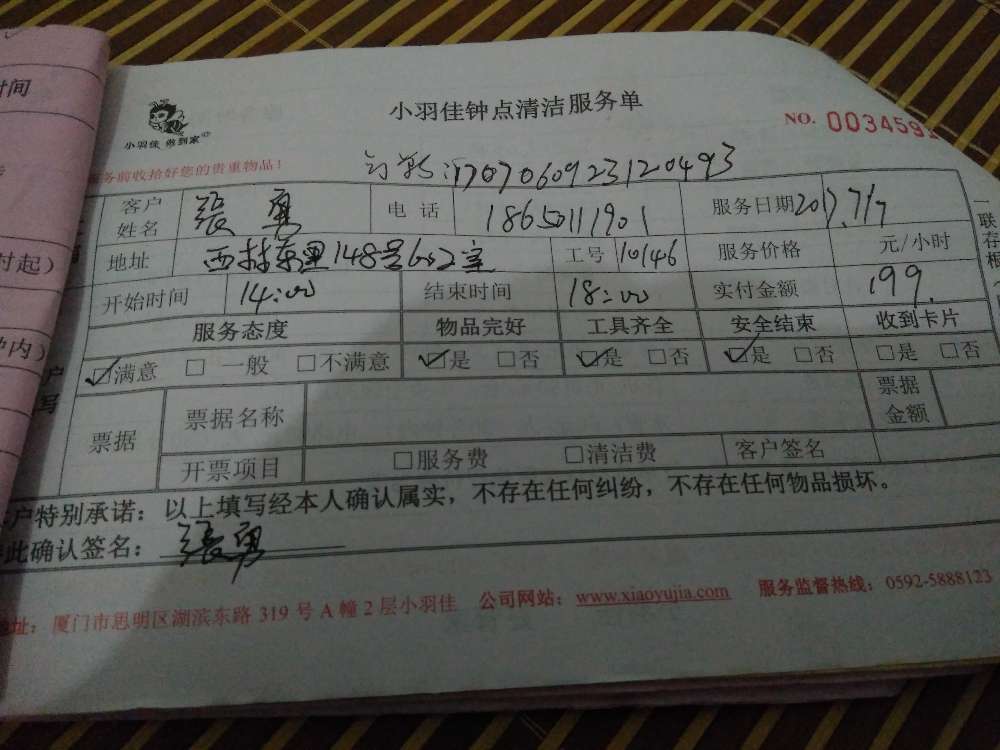 小羽佳钟点清洁服务单
NO. 003459
小羽佳 做到家
务前收拾好您的贵重物品!
订单:1707060923120493
客户姓名 張勇 电话 18650111901 服务日期 2017.7/7
地址 西林东里148号602室 工号 10146 服务价格 元/小时
开始时间 14:00 结束时间 18:00 实付金额 199.
服务态度 物品完好 工具齐全 安全结束 收到卡片
☑满意 □一般 □不满意 ☑是 □否 ☑是 □否 ☑是 □否 □是 □否
票据 票据名称 票据金额
开票项目 □服务费 □清洁费 客户签名
户特别承诺：以上填写经本人确认属实，不存在任何纠纷，不存在任何物品损坏。
此确认签名：張勇
址：厦门市思明区湖滨东路 319 号 A 幢 2 层小羽佳 公司网站：www.xiaoyujia.com 服务监督热线：0592-5888123
一联存根
时间
付起）
内）
户
写